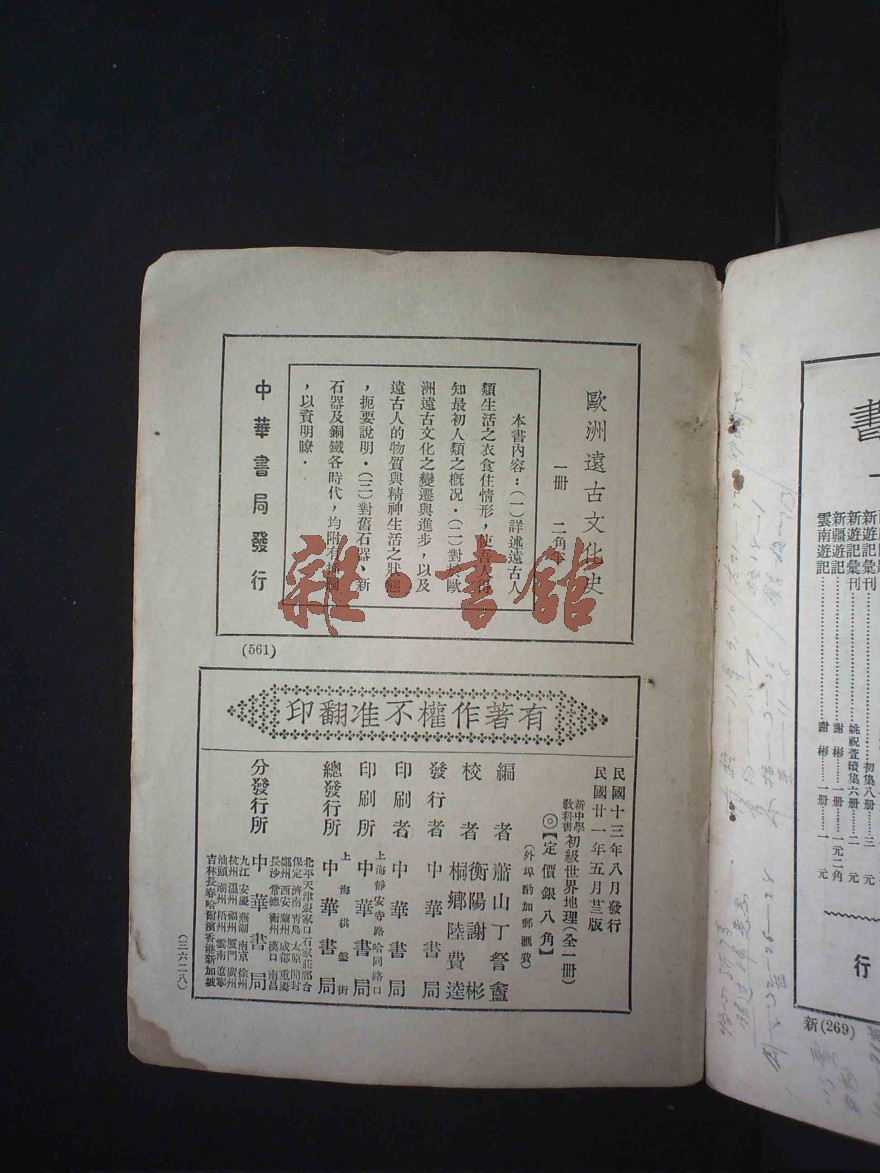 歐洲遠古文化史
一册 二角
本書內容：(一)詳述遠古人
類生活之衣食住情形，使吾人得
知最初人類之概况．(二)對於歐
洲遠古文化之變遷與進步，以及
遠古人的物質與精神生活之狀態
，扼要說明．(三)對舊石器、新
石器及銅鐵各時代，均附有插圖
，以資明瞭．
中華書局發行
(561)
雜·書館
有著作權不准翻印
民國十三年八月發行
民國廿一年五月 版
新中學教科書 初級世界地理(全一册)
◎【定價銀八角】
(外埠酌加郵滙費)
編者 蕭山丁詧盦
校者 衡陽謝彬
桐鄉陸費逵
發行者 中華書局
印刷者 中華書局
上海靜安寺路哈同路口
印刷所 中華書局
上海棋盤街
總發行所 中華書局
分發行所 中華書局
北平 天津 張家口 石家莊 邢台
保定 濟南 青島 太原 開封
鄭州 西安 蘭州 成都 重慶
長沙 常德 衡州 漢口 南昌
九江 安慶 蕪湖 南京 徐州
杭州 溫州 福州 厦門 廣州
汕頭 潮州 梧州 雲南 遼寧
吉林 長春 哈爾濱 香港 新加坡
(三六二八)
書
新遊記彙刊 初集八册 三元
新遊記彙刊 姚祝萱續集六册 二元
新疆遊記 謝彬 一册 一元二角
雲南遊記 謝彬 一册 一元
行
新(269)